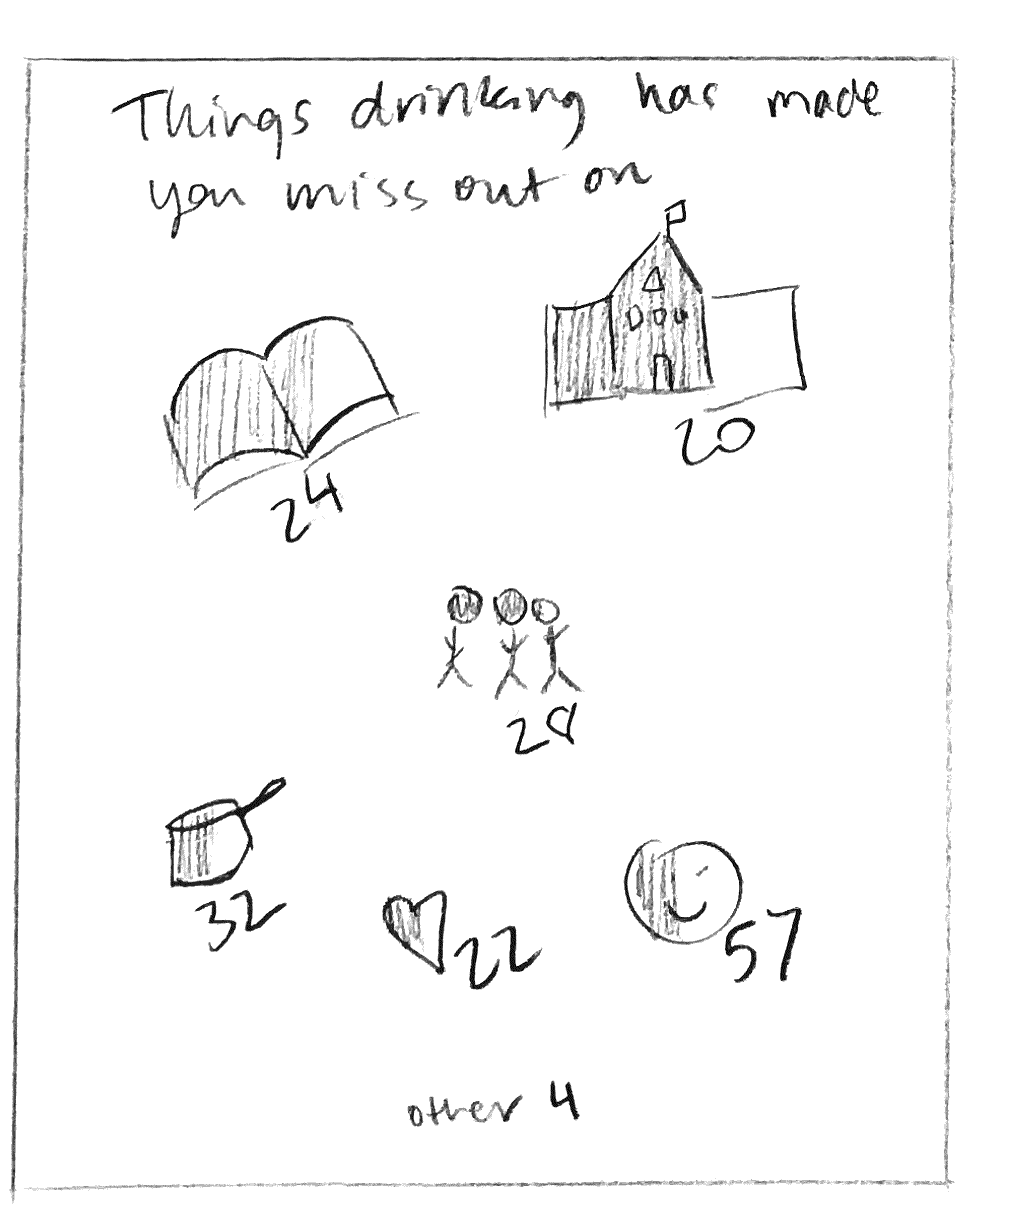 Things drinking has made
you miss out on
20
24
28
32
22
57
other 4